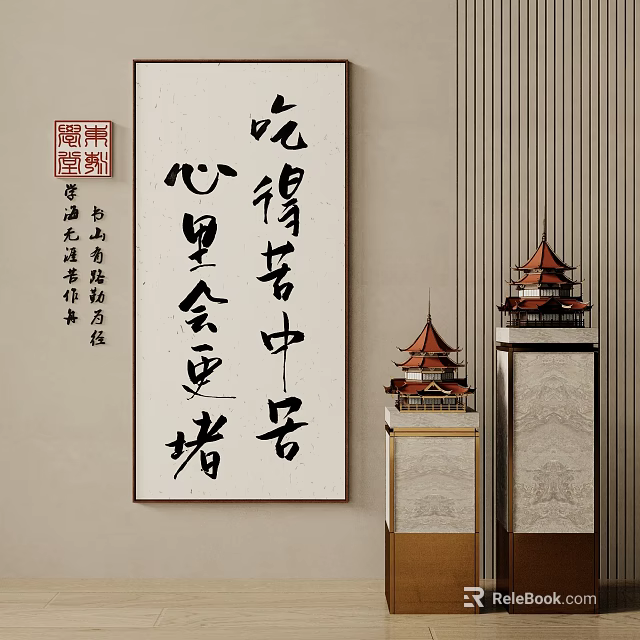 吃得苦中苦
心里会更堵
书山有路勤为径
学海无涯苦作舟
ReleBook.com